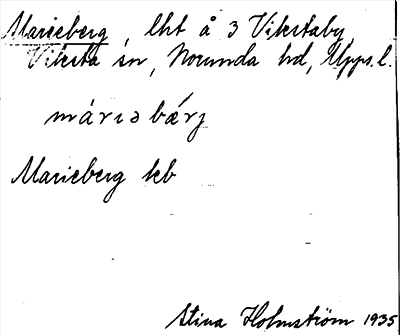 Marieberg, lht å 3 Vikstaby,
Viksta sn, Norunda hd, Upps. l.
márıəbǽrj
Marieberg kb
Stina Holmström 1935